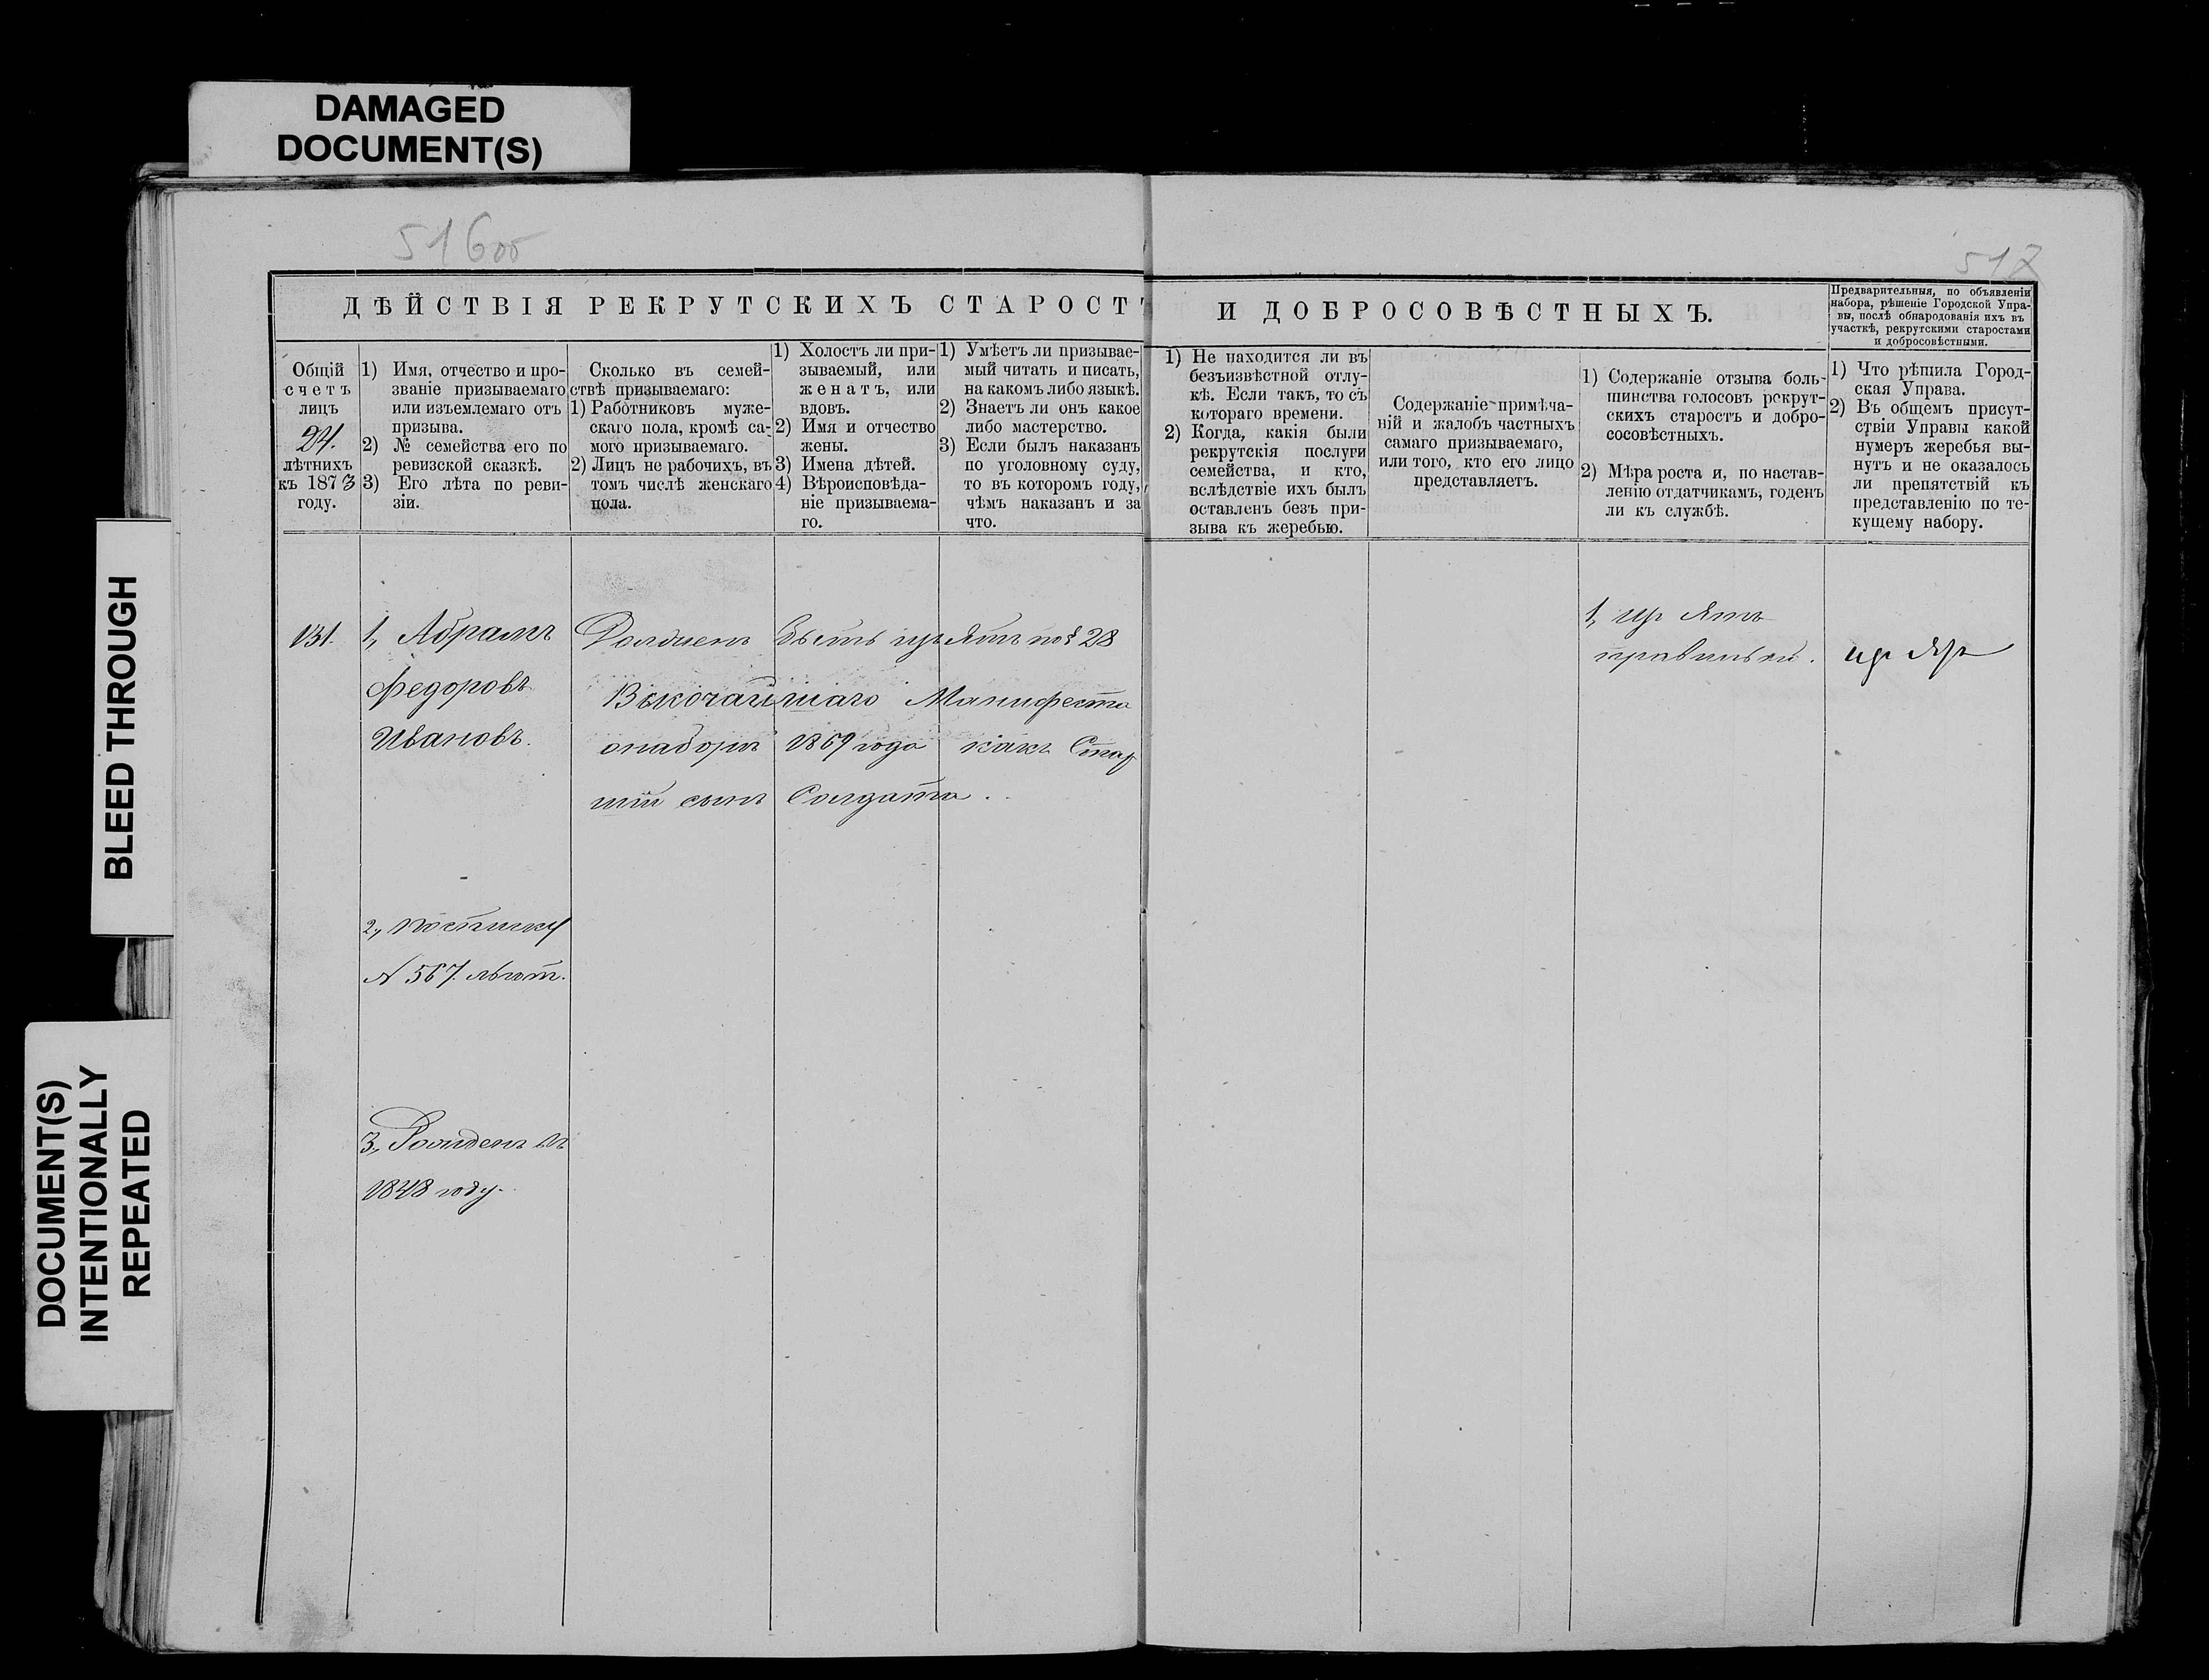 DAMAGED
DOCUMENT(S)
BLEED THROUGH
DOCUMENT(S)
INTENTIONALLY
REPEATED
516об
517
ДѢЙСТВІЯ РЕКРУТСКИХЪ СТАРОСТЪ И ДОБРОСОВѢСТНЫХЪ.
Предварительныя, по объявленіи
набора, рѣшеніе Городской Упра-
вы, послѣ обнародованія ихъ въ
участкѣ, рекрутскими старостами
и добросовѣстными.
Общій
счетъ
лицъ
24.
лѣтнихъ
къ 1873
году.
1) Имя, отчество и про-
званіе призываемаго
или изъемлемаго отъ
призыва.
2) № семейства его по
ревизской сказкѣ.
3) Его лѣта по реви-
зіи.
Сколько въ семей-
ствѣ призываемаго:
1) Работниковъ муже-
скаго пола, кромѣ са-
мого призываемаго.
2) Лицъ не рабочихъ, въ
томъ числѣ женскаго
пола.
1) Холостъ ли при-
зываемый, или
женатъ, или
вдовъ.
2) Имя и отчество
жены.
3) Имена дѣтей.
4) Вѣроисповѣда-
ніе призываема-
го.
1) Умѣетъ ли призывае-
мый читать и писать,
на какомъ либо языкѣ.
2) Знаетъ ли онъ какое
либо мастерство.
3) Если былъ наказанъ
по уголовному суду,
то въ которомъ году,
чѣмъ наказан и за
что.
1) Не находится ли въ
безъизвѣстной отлу-
кѣ. Если такъ, то съ
котораго времени.
2) Когда, какія были
рекрутскія послуги
семейства, и кто,
вслѣдствіе ихъ былъ
оставленъ безъ при-
зыва къ жеребью.
Содержаніе примѣча-
ній и жалобъ частныхъ
самаго призываемаго,
или того, кто его лицо
представляетъ.
1) Содержаніе отзыва боль-
шинства голосовъ рекрут-
скихъ старостъ и добро-
сосовѣстныхъ.
2) Мѣра роста и, по настав-
ленію отдатчикамъ, годенъ
ли къ службѣ.
1) Что рѣшила Город-
ская Управа.
2) Въ общемъ присут-
ствіи Управы какой
нумеръ жеребья вы-
нутъ и не оказалось
ли препятствій къ
представленію по те-
кущему набору.
131.
1, Абрамъ
Федоровъ
Ивановъ.
Должен быть изъятъ по § 28
Высочайшаго Манифеста
о наборѣ 1869 года какъ Стар
шій сынъ Солдата.
1, изъятъ
правильно.
изъят
2, по списку
N 567. льгот.
3, Рожденъ въ
1848 году.